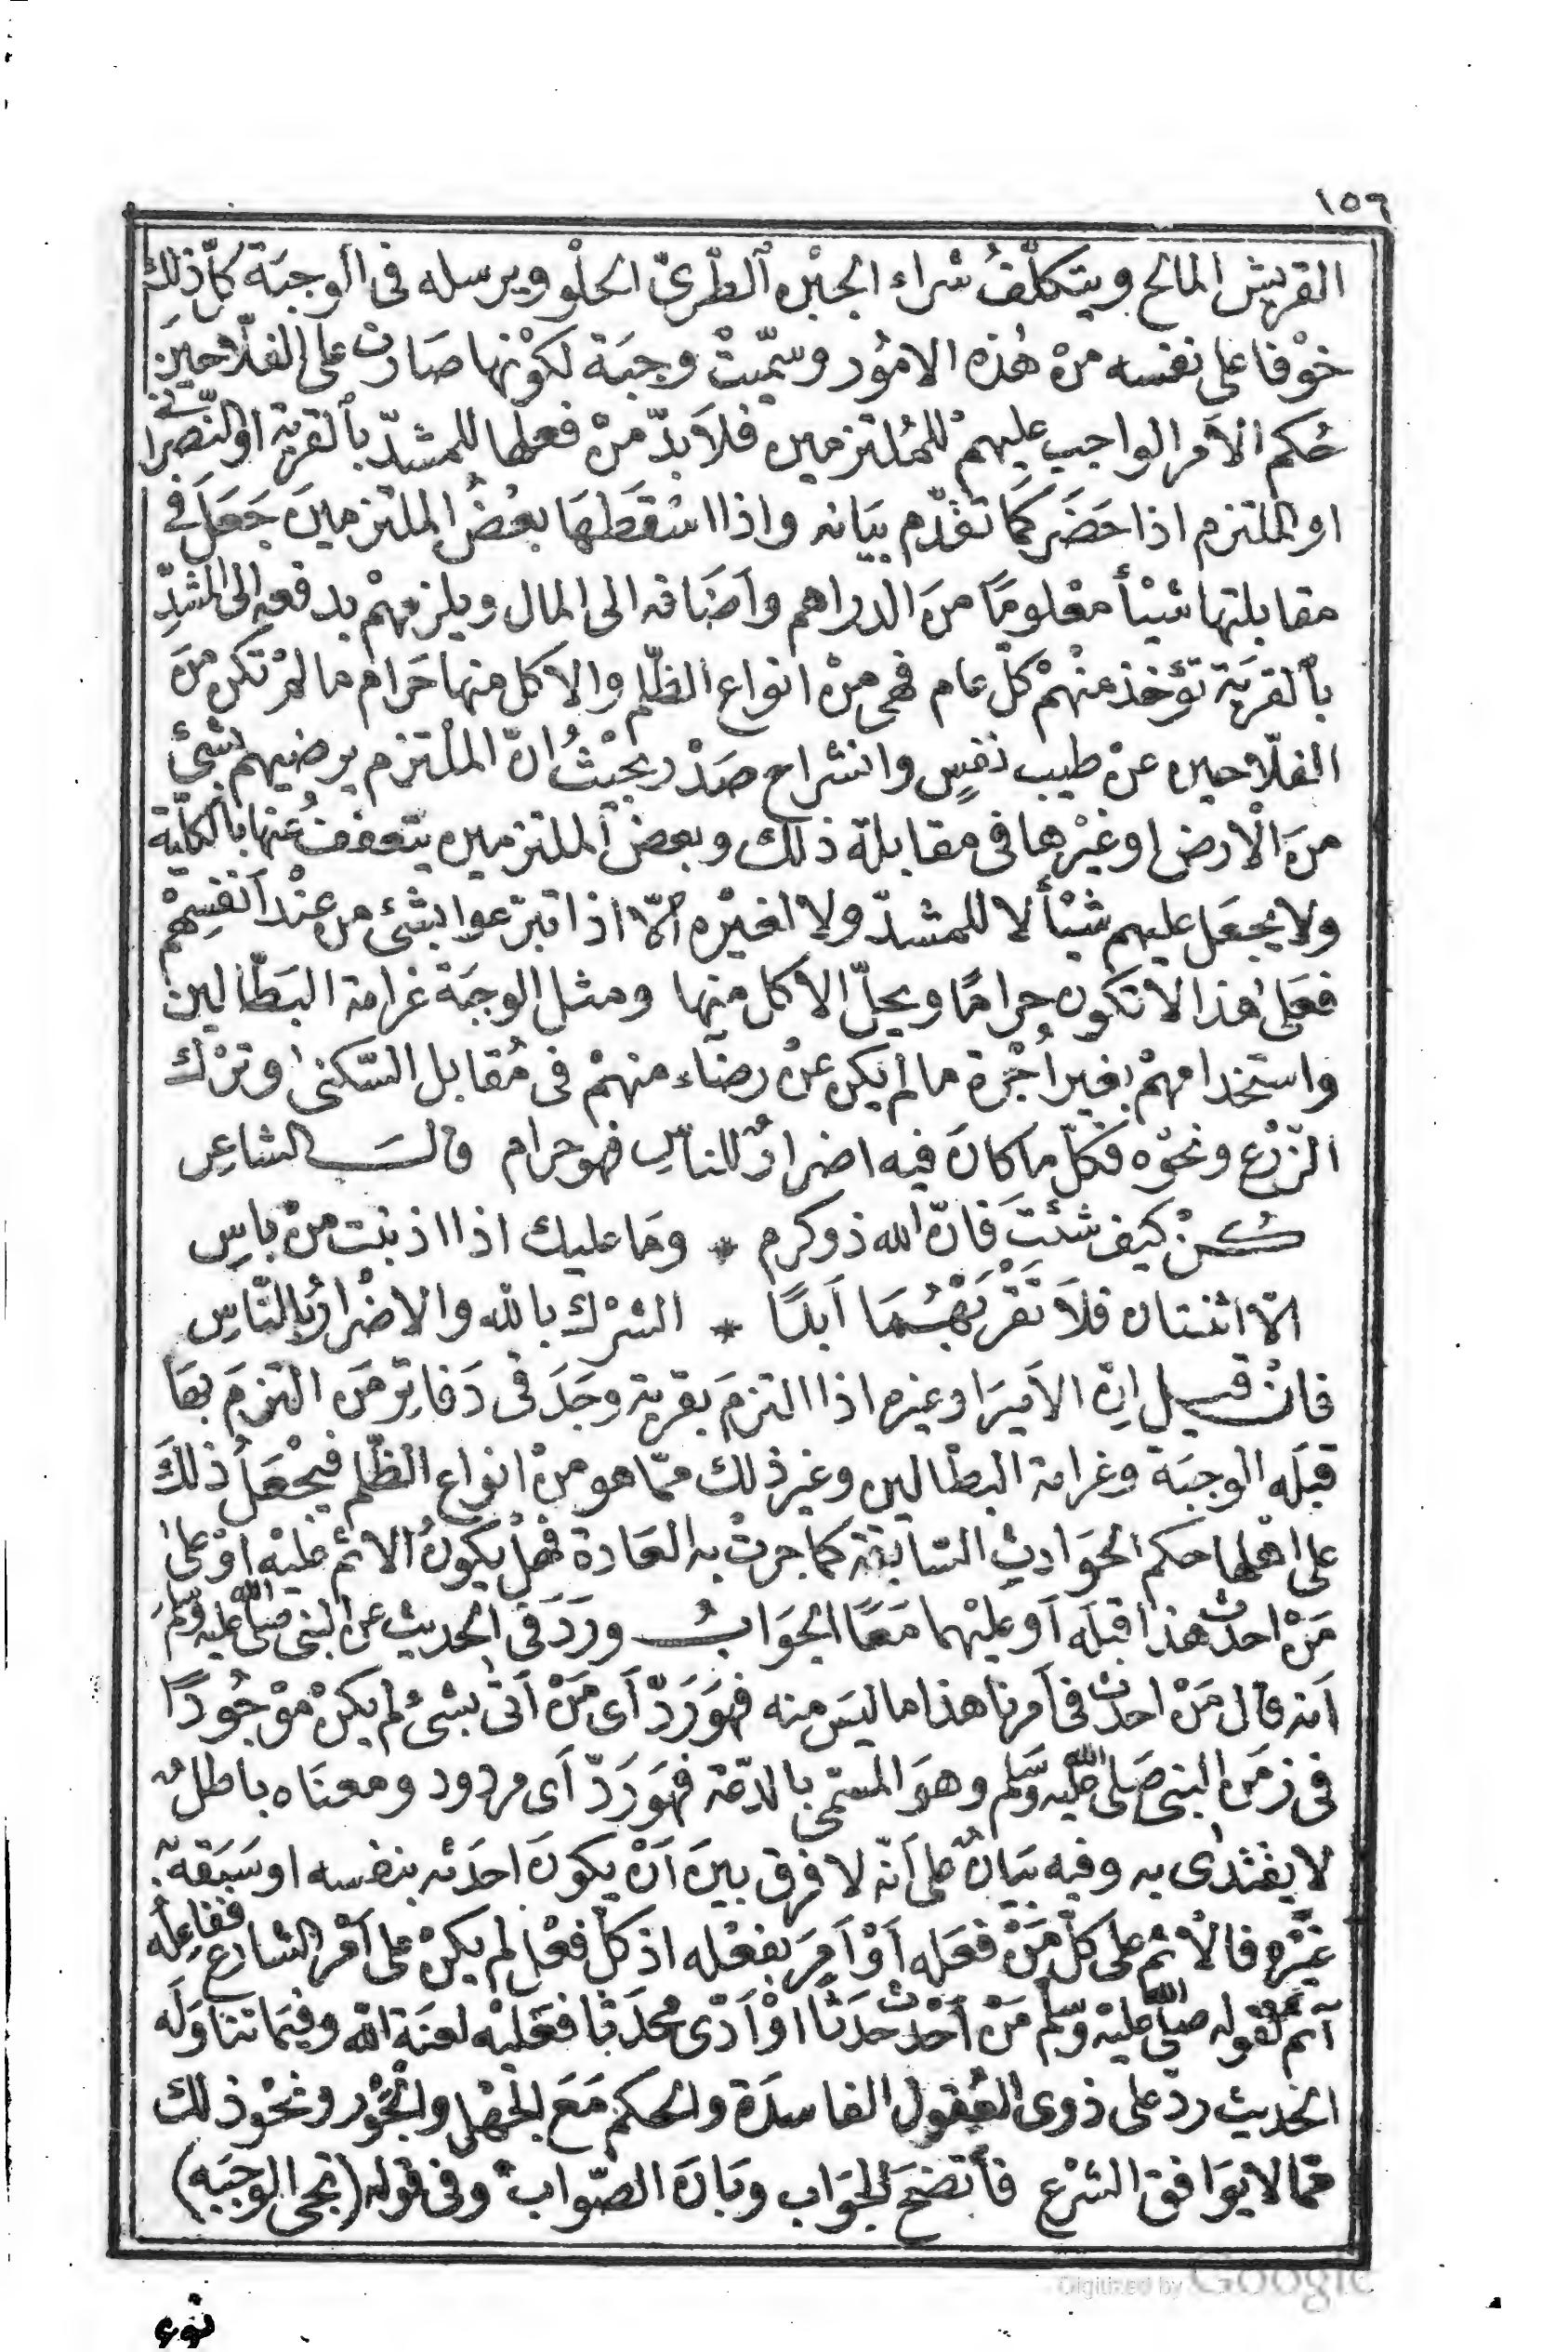 ١٥٦
القريش المالح ويتكلّفُ شراء الجبْن ٱلطّرىّ الحلْو ويرسله فى الوجبَة كلّ ذلك
خوْفا على نفسه منْ هٰذه الامُور وسمّيتْ وجبَة لكوْنها صَارت على الفلّاحينَ
حُكم الأمر الواجب عليهمْ للمُلتزمين فلاَ بدّ منْ فعلها للمشدّ بٱلقرية او النّصْرانى
او الملتزم اذا حَضَر كمَا تقدّم بيَانه واذا اسْقَطهَا بعْضُ الملتزمينَ جَعَلَ فى
مقابلتها شيْأً معْلومًا منَ الدراهم وأضَافه الى المال ويلزمهمْ بدفعه الى المشدِّ
بٱلقريَة تؤخذ منْهمْ كلّ عام فهى منْ انواع الظّلم والاكل منها حَرام ما لمْ تكن منَ
الفلّاحين عنْ طيب نفسٍ وانشراح صَدْر بحيْثُ انّ الملْتزم يرضيهم بشئٍ
منَ الْارض او غيْرها فى مقابلة ذلك وبعض ٱلملتزمين يتعففُ عنها بالكلّية
ولا يجعَل عليهم شيْأً لا للمشدّ ولا لغيْره الّا اذا تبرّعوا بشئ من عنْد أنفسِهمْ
فعَلى هٰذا لا تكون حرامًا ويحلّ الاكل منها ومثل الوجبَة غرامة البَطّالين
واستخدامهمْ بغير اُجْرة ما لم يكن عنْ رضَاء منهمْ فى مُقابل السّكنىٰ وترْك
الزّرْع ونحْوه فكلّ ما كانَ فيه اضرارٌ للناس فهو حرام قالــَ الشاعر
كُــنْ كيف شئتَ فانّ الله ذو كرم * ومَا عليك اذا اذنبت منْ باسِ
الّا اثنتان فلاَ تَقْرَبْهُــمَا أبدًا * الشرْك بالله والاضْرارُ بالنّاسِ
فانْ قيــل انّ الأميرَ او غيره اذا التزمَ بقرية وجَدَ فى دَفاتر مَن التزمَ بهَا
قبْلَه الوجبَة وغرامة البطّالين وغير ذلك ممّا هو منْ انواع الظّلم فيجْعَلُ ذلكَ
على اهْلها حكم الحوَادثِ السّابقة كما جرتْ به العَادة فهلْ يكونُ الاثم عليْه أوْ علىٰ
مَنْ احدث هذا قبْلَه أو عليْهما مَعًا الجوَابُــ ورَدَ فى الحديث عن النبى صلى الله عليه وسلم
أنه قال مَنْ احدث فى أمرنا هذا ما ليسَ منه فهوَ رَدّ أى مَنْ أتىٰ بشئ لم يكنْ موْجُودًا
فى زمَن النبى صَلى الله عليْه وسَلم وهوَ المسَمّى بالبدْعَة فهَوَ رَدّ أى مردود ومعنَاه باطلٌ
لا يقْتدٰى به وفيه بيَانٌ على أنّه لا فرق بينَ أنْ يكونَ احدَثه بنفسه او سَبَقهُ
غيْره فالْاثم على كلّ مَنْ فعَله أوْ أمَر بفعْله اذ كلّ فعْل لم يكنْ على أمْر الشارع ففَاعِلُه
آثم لقوله صلى الله عليْه وسلم مَنْ أحْدث حدَثًا اوْ أوٰى مُحْدثا فعَليْه لعنَة الله وفيمَا تناوَلَه
الحديث ردّ على ذوى العُقول الفاسدَة والحكم مَعَ الجَهْل والجَوْر ونحْو ذلك
ممّا لا يوَافق الشرْع فأتضحَ الجوَاب وبَانَ الصّواب وفى قوله (تجى الوجبَه)
نوع